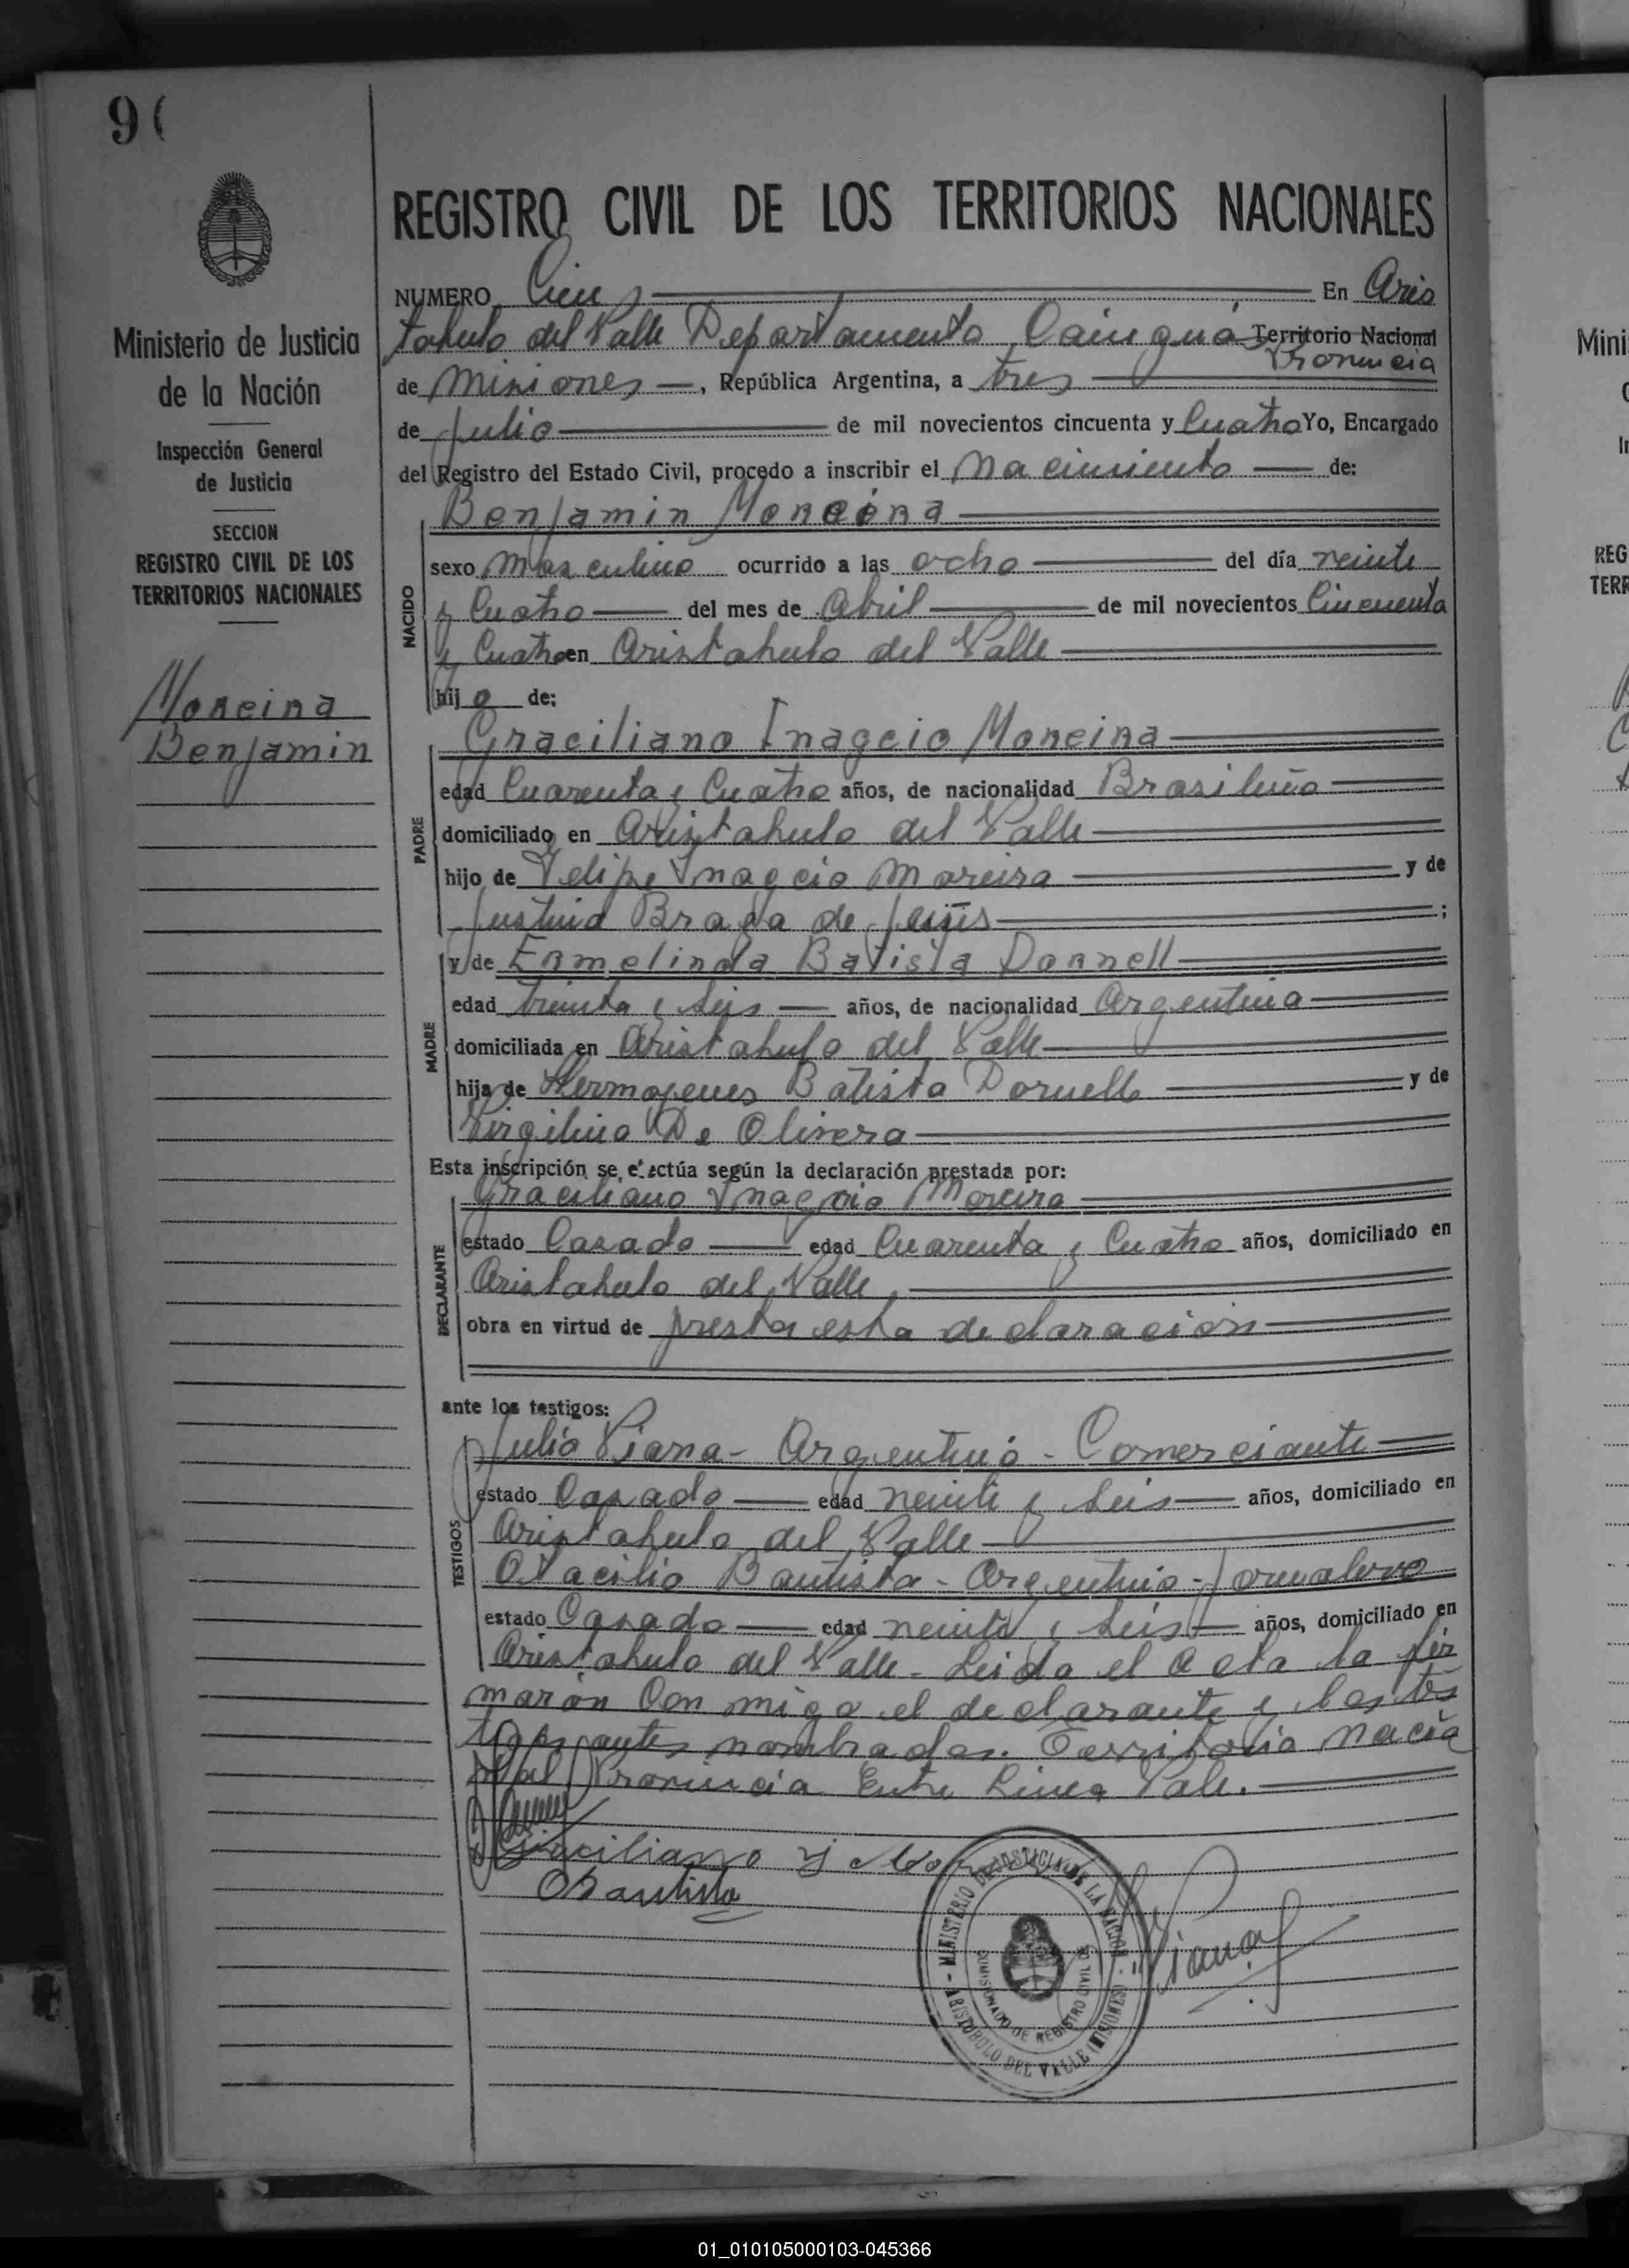 9(
REGISTRO CIVIL DE LOS TERRITORIOS NACIONALES
Ministerio de Justicia
de la Nación
Inspección General
de Justicia
SECCION
REGISTRO CIVIL DE LOS
TERRITORIOS NACIONALES
Moreira
Benjamin
NUMERO Cien En Aris
tobulo del Valle Departamento Cainguás Territorio Nacional
Provincia
de Misiones, República Argentina, a tres
de Julio de mil novecientos cincuenta y Cuatro Yo, Encargado
del Registro del Estado Civil, procedo a inscribir el Nacimiento de:
Benjamin Moreira
NACIDO
sexo Masculino ocurrido a las ocho del día veinte
y Cuatro del mes de Abril de mil novecientos Cincuenta
y Cuatro en Aristobulo del Valle
hijo de:
Graciliano Inaccio Moreira
PADRE
edad Cuarenta y Cuatro años, de nacionalidad Brasileño
domiciliado en Aristobulo del Valle
hijo de Felipe Inaccio Moreira y de
Justina Braga de Jesús;
y de Ermelinda Batista Dornell
MADRE
edad treinta y Seis años, de nacionalidad Argentina
domiciliada en Aristobulo del Valle
hija de Hermogenes Batista Dornelle y de
Virgilina De Olivera
Esta inscripción se efectúa según la declaración prestada por:
Graciliano Inaccio Moreira
DECLARANTE
estado Casado edad Cuarenta y Cuatro años, domiciliado en
Aristobulo del Valle,
obra en virtud de presta esta declaración
ante los testigos:
Julio Viana - Argentino - Comerciante
TESTIGOS
estado Casado edad veinte y Seis años, domiciliado en
Aristobulo del Valle
Otacilio Bautista - Argentino - Jornalero
estado Casado edad veinte y Seis años, domiciliado en
Aristobulo del Valle - Leida el Acta la fir
marón Con migo el declarante y los tes
tigos antes nombrados. Territorio Nacio
nal Provincia Entre Linea Vale.
Graciliano y Mor
OBautista
JViana
MINISTERIO DE JUSTICIA DE LA NACION
COMISIONADO DE REGISTRO CIVIL DE
ARISTOBOLO DEL VALLE (MISIONES)
Mini
REG
TERR
01_010105000103-045366